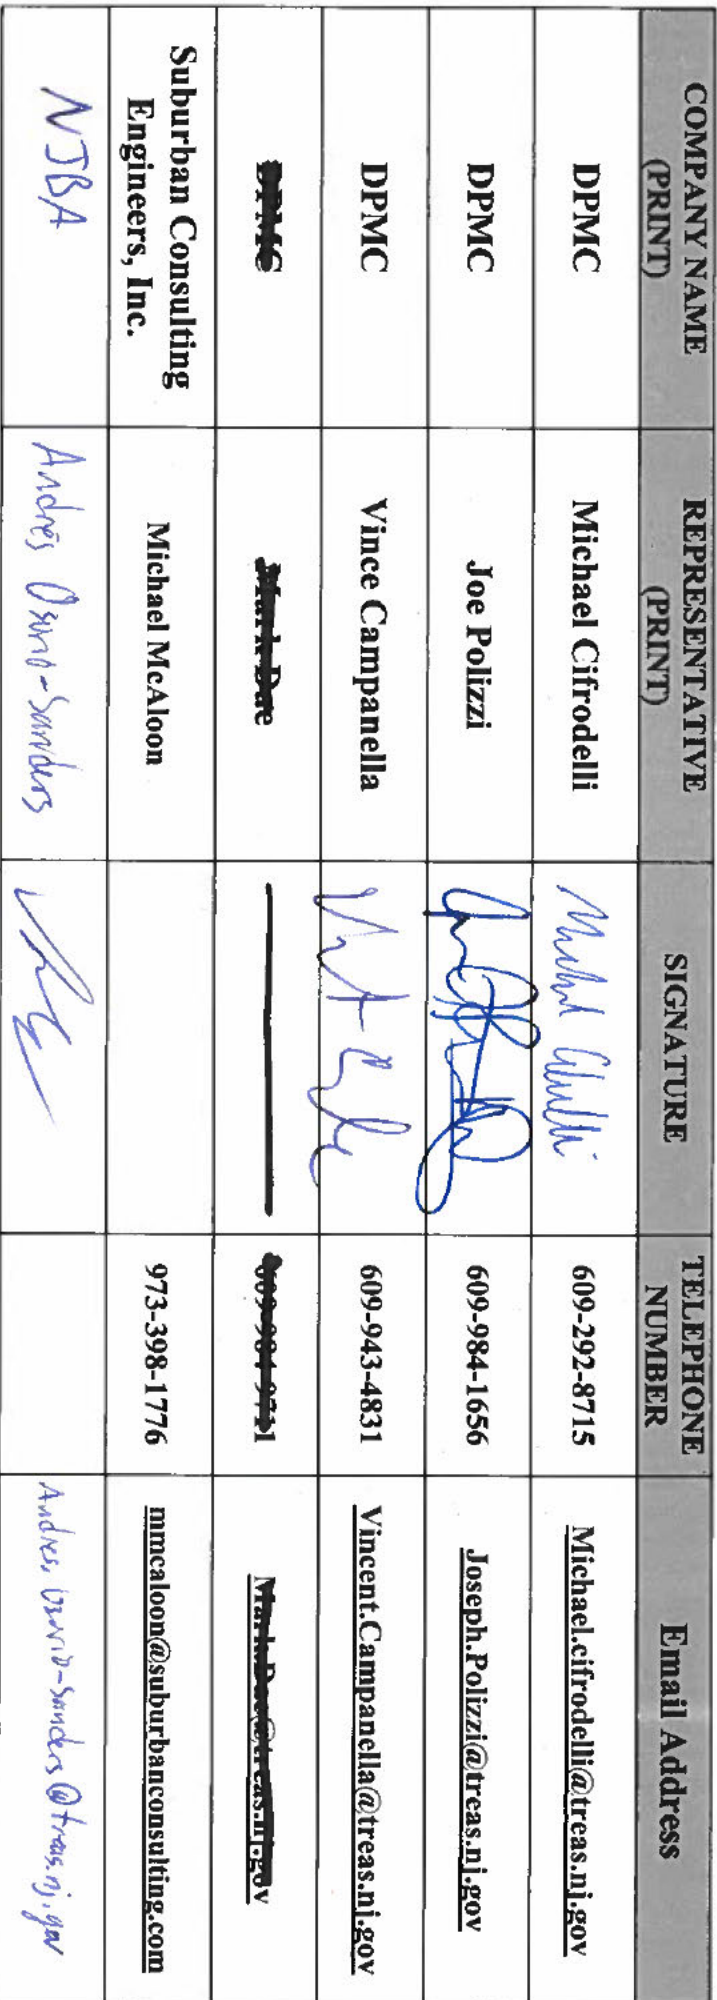 COMPANY NAME (PRINT) REPRESENTATIVE (PRINT) SIGNATURE TELEPHONE NUMBER Email Address
DPMC Michael Cifrodelli 609-292-8715 Michael.cifrodelli@treas.nj.gov
DPMC Joe Polizzi 609-984-1656 Joseph.Polizzi@treas.nj.gov
DPMC Vince Campanella 609-943-4831 Vincent.Campanella@treas.nj.gov
DPMC
Suburban Consulting Engineers, Inc. Michael McAloon 973-398-1776 mmcaloon@suburbanconsulting.com
NJBA Andres